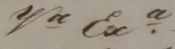 Vª Exª.